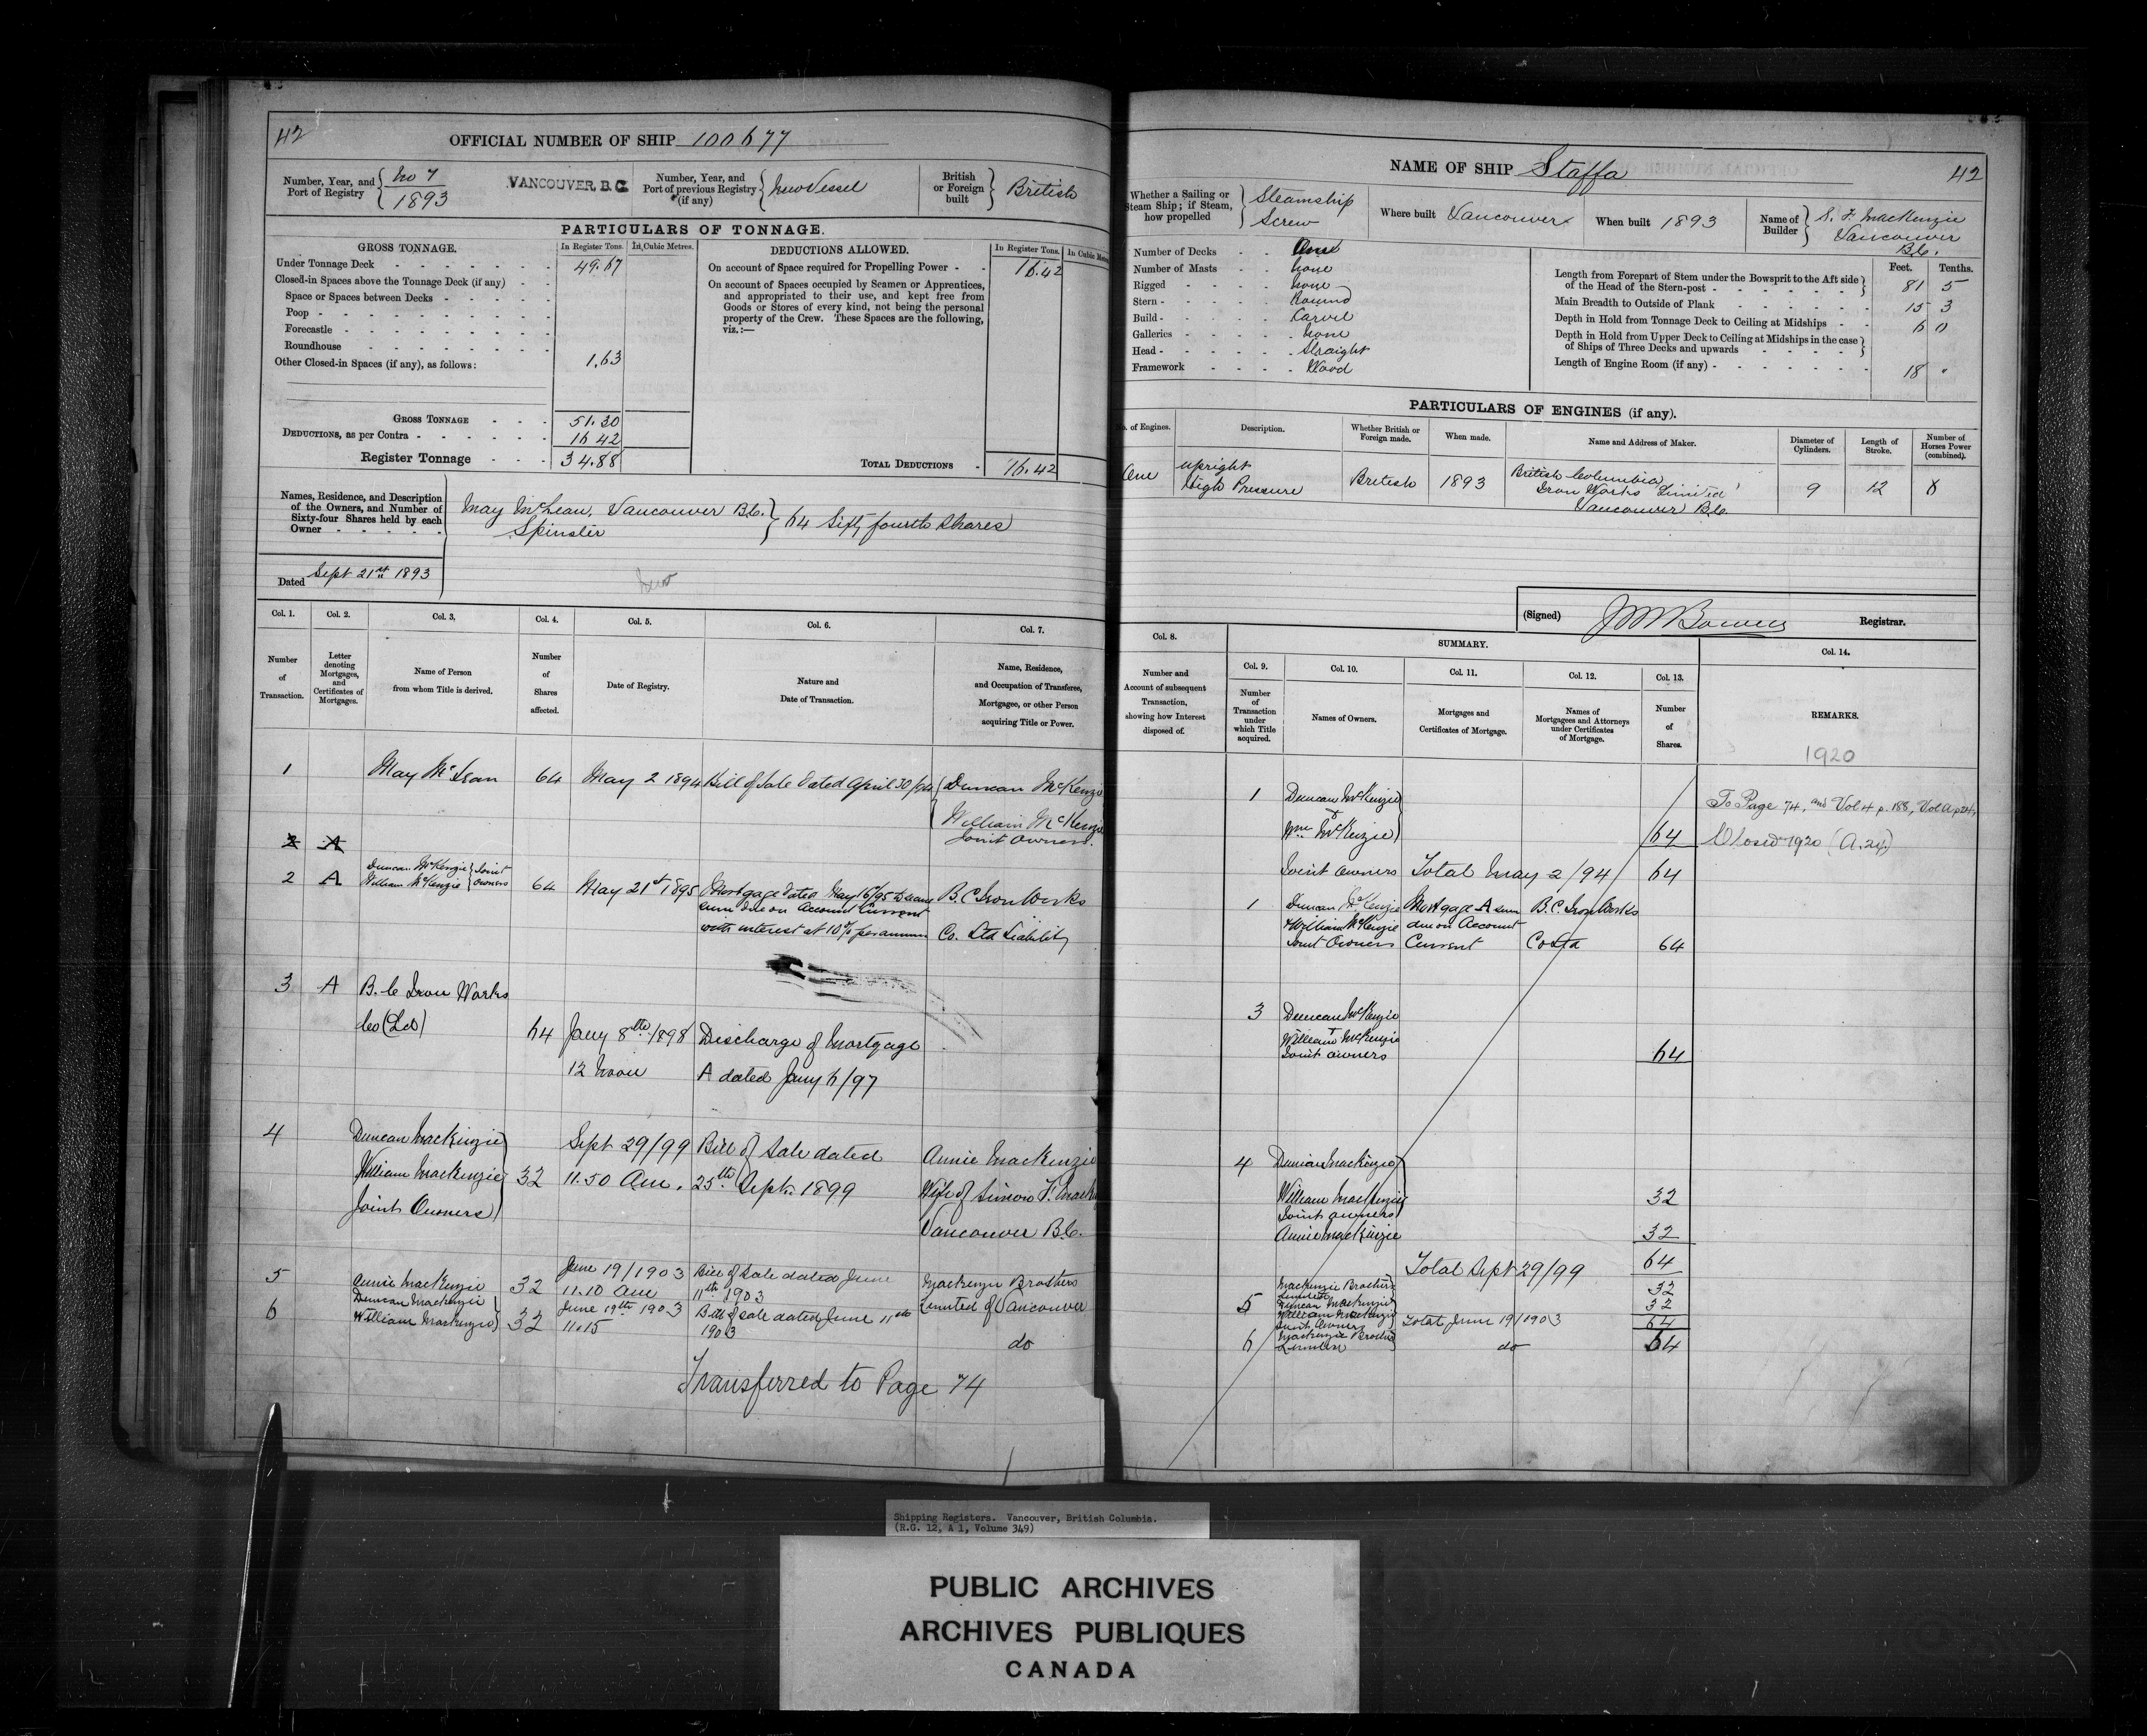 42
OFFICIAL NUMBER OF SHIP 100677
Number, Year, and Port of Registry
No 7
1893
VANCOUVER, B.C.
Number, Year, and Port of previous Registry (if any)
New Vessel
British or Foreign built
British
PARTICULARS OF TONNAGE.
GROSS TONNAGE.
In Register Tons.
In Cubic Metres.
Under Tonnage Deck 49.67
Closed-in Spaces above the Tonnage Deck (if any)
Space or Spaces between Decks
Poop
Forecastle
Roundhouse
Other Closed-in Spaces (if any), as follows: 1.63
GROSS TONNAGE 51.30
DEDUCTIONS, as per Contra 16 42
Register Tonnage 34.88
DEDUCTIONS ALLOWED.
In Register Tons.
In Cubic
On account of Space required for Propelling Power 16.42
On account of Spaces occupied by Seamen or Apprentices,
and appropriated to their use, and kept free from
Goods or Stores of every kind, not being the personal
property of the Crew. These Spaces are the following,
viz.:—
TOTAL DEDUCTIONS 16.42
Names, Residence, and Description
of the Owners, and Number of
Sixty-four Shares held by each
Owner
May McLean, Vancouver B.C.
Spinster
64 Sixty fourth Shares
Dated Sept 21st 1893
Col. 1.
Number of Transaction.
Col. 2.
Letter denoting Mortgages, and Certificates of Mortgages.
Col. 3.
Name of Person from whom Title is derived.
Col. 4.
Number of Shares affected.
Col. 5.
Date of Registry.
Col. 6.
Nature and Date of Transaction.
Col. 7.
Name, Residence, and Occupation of Transferee, Mortgagee, or other Person acquiring Title or Power.
1 May McLean 64 May 2 1894 Bill of Sale Dated April 30/94 Duncan McKenzie
William McKenzie
Joint Owners.
2 A
2 A Duncan McKenzie
William McKenzie Joint Owners 64 May 21st 1895 Mortgage dated May 16/95 to secure
sum due on Account Current
with interest at 10% per annum
B.C Iron Works
Co. Ltd Liability
3 A B.C Iron Works
Co (Ltd) 64 Jany 8th 1898 Discharge of Mortgage
12 Noon A dated Jany 6/97
4 Duncan MacKenzie
William MacKenzie
Joint Owners 32 Sept 29/99
11.50 Am. Bill of Sale dated
25th Sept. 1899
Annie MacKenzie
Wife of Simon F. Mack
Vancouver B.C.
5 Annie MacKenzie 32 June 19/1903
11.10 am Bill of Sale dated June
11th 1903
Mackenzie Brothers
Limited of Vancouver
6 Duncan Mackenzie
William Mackenzie 32 June 19th 1903
11.15 Bill of sale dated June 11th
1903
do
Transferred to Page 74
NAME OF SHIP Staffa
42
Whether a Sailing or Steam Ship; if Steam, how propelled
Steamship
Screw
Where built Vancouver
When built 1893
Name of Builder
S. F. MacKenzie
Vancouver
B.C.
Number of Decks One
Number of Masts None
Rigged None
Stern Round
Build Carvel
Galleries None
Head Straight
Framework Wood
Feet. Tenths.
Length from Forepart of Stem under the Bowsprit to the Aft side
of the Head of the Stern-post 81 5
Main Breadth to Outside of Plank 15 3
Depth in Hold from Tonnage Deck to Ceiling at Midships 6 0
Depth in Hold from Upper Deck to Ceiling at Midships in the case
of Ships of Three Decks and upwards
Length of Engine Room (if any) 18
PARTICULARS OF ENGINES (if any).
of Engines.
Description.
Whether British or Foreign made.
When made.
Name and Address of Maker.
Diameter of Cylinders.
Length of Stroke.
Number of Horses Power (combined).
One
Upright
High Pressure
British
1893
British Columbia
Iron Works Limited
Vancouver B.C.
9
12
(Signed)
Registrar.
Col. 8.
Number and Account of subsequent Transaction, showing how Interest disposed of.
SUMMARY.
Col. 9.
Number of Transaction under which Title acquired.
Col. 10.
Names of Owners.
Col. 11.
Mortgages and Certificates of Mortgage.
Col. 12.
Names of Mortgagees and Attorneys under Certificates of Mortgage.
Col. 13.
Number of Shares.
Col. 14.
REMARKS.
1920
1 Duncan McKenzie
Wm McKenzie 64
Joint Owners Total May 2/94 64
To Page 74, and Vol 4 p. 188,
Closed 1920
1 Duncan McKenzie Mortgage A sum B.C. Iron Works
+William McKenzie due on Account
Joint Owners Current Co Ltd 64
3 Duncan McKenzie
+
William McKenzie
Joint owners 64
4 Duncan MacKenzie
William MacKenzie 32
Joint owners
Annie MacKenzie 32
Total Sept 29/99 64
5 Mackenzie Brothers
Limited 32
Duncan Mackenzie 32
William Mackenzie
Joint Owners Total June 19/1903 64
6 Mackenzie Brothers
Limited do 64
Shipping Registers. Vancouver, British Columbia.
(R.G. 12, A 1, Volume 349)
PUBLIC ARCHIVES
ARCHIVES PUBLIQUES
CANADA